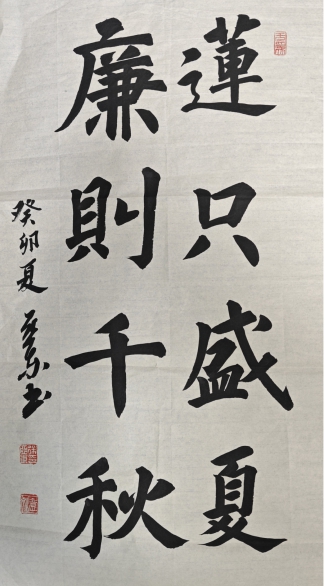 蓮只盛夏
廉則千秋
癸卯夏 書